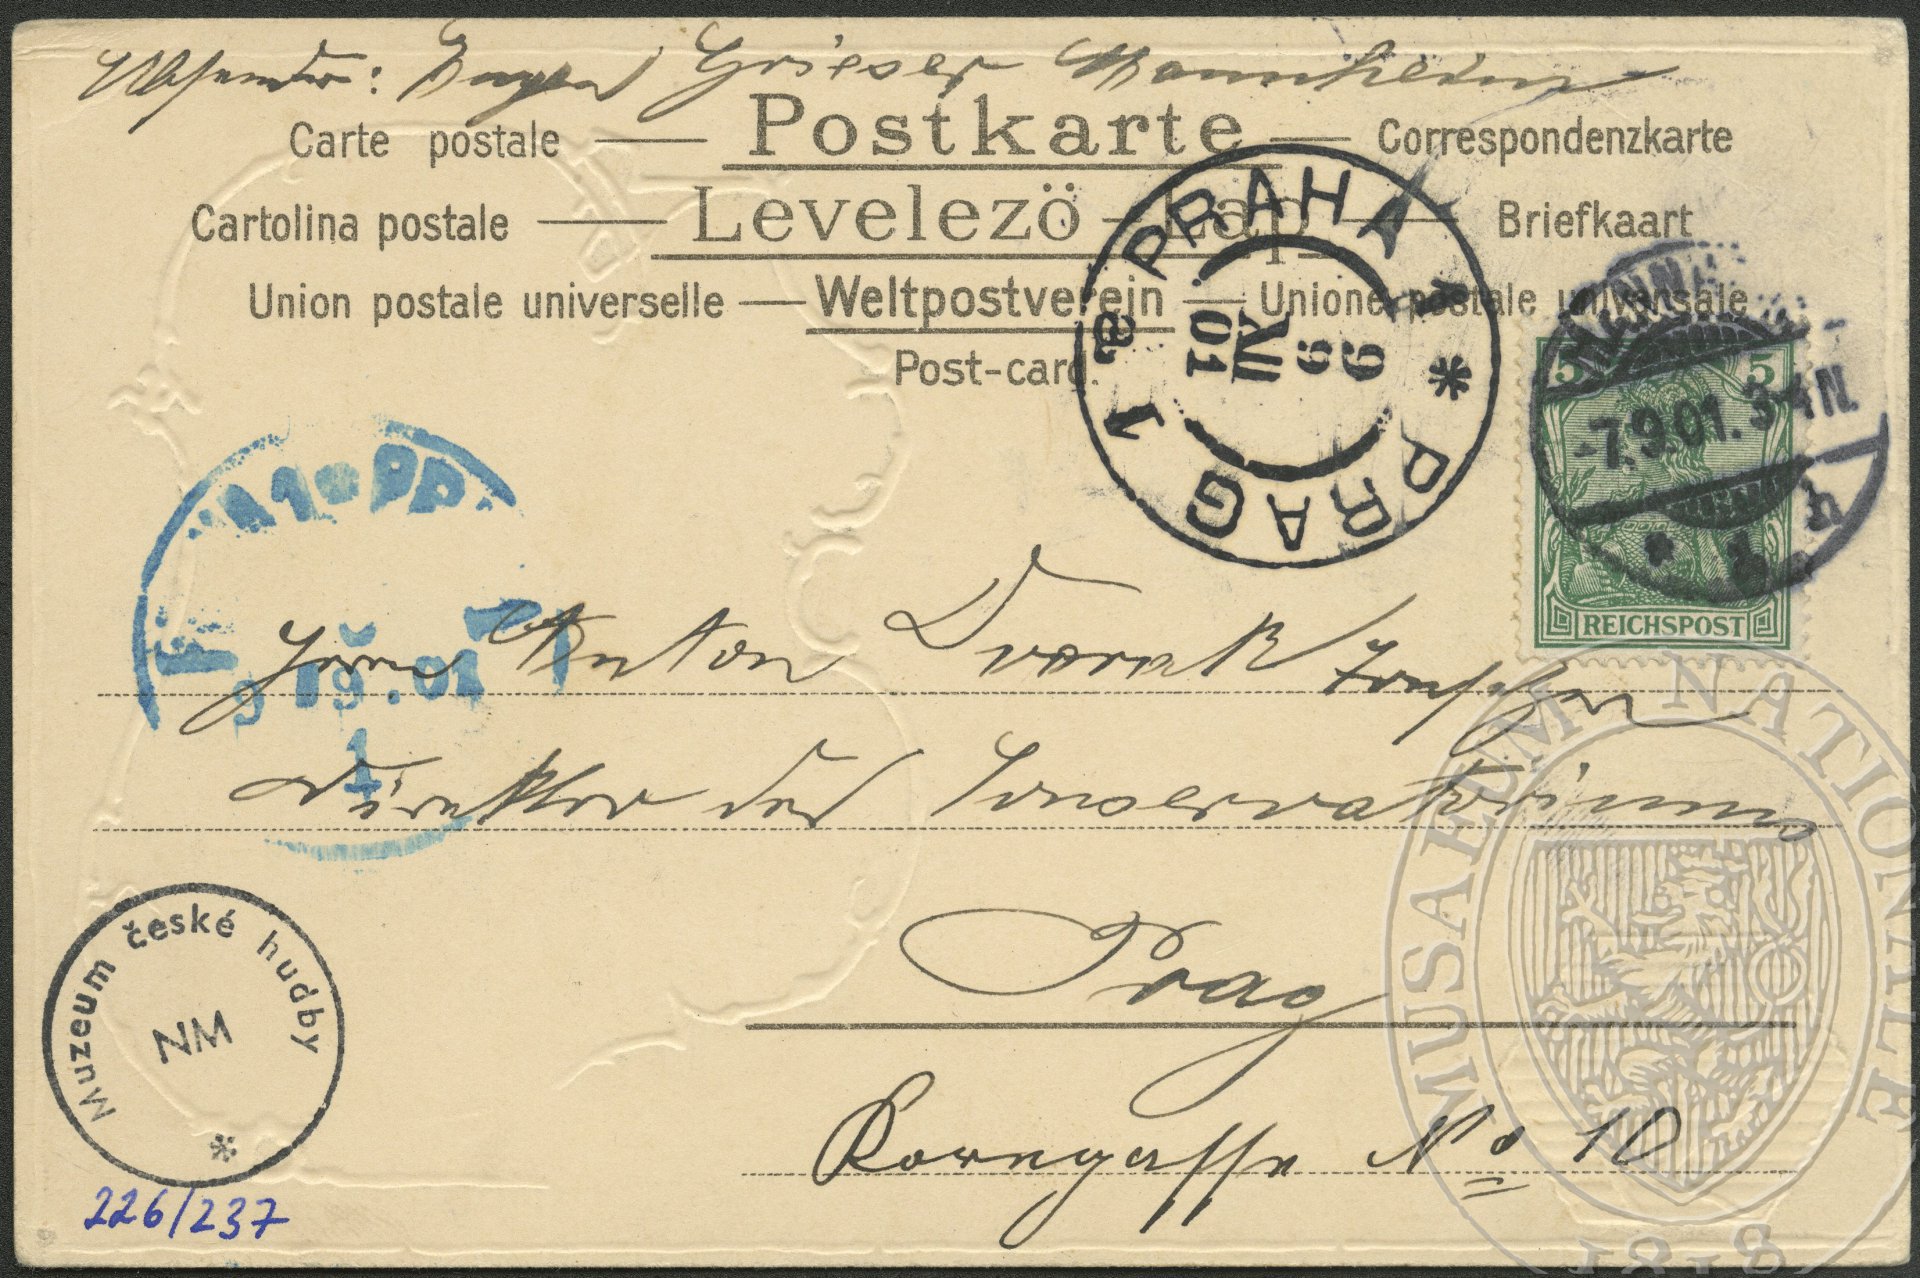 Absender: Eugen Grieser Mannheim
Carte postale — Postkarte — Correspondenzkarte
Cartolina postale — Levelezö-Lap — Briefkaart
Union postale universelle — Weltpostverein — Unione postale universale
Post-card.
PRAHA 1 PRAG
9 9
XII
01
-7.9.01. 3-4 N.
5 5
REICHSPOST
9 IS. 01
1
Herrn Anton Dvorak
Direktor des Conservatoriums
Prag
Korngasse No 10
Muzeum české hudby
NM
226/237
MUSAEUM NATIONALE
1818